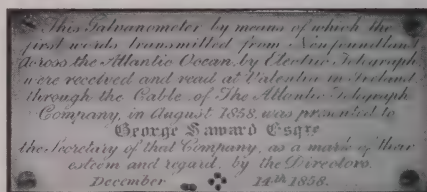 This Galvanometer by means of which the
first words transmitted from Newfoundland
across the Atlantic Ocean, by Electric Telegraph
were received and read at Valentia in Ireland
through the Cable of The Atlantic Telegraph
Company, in August 1858, was presented to
George Saward Esqre
the Secretary of that Company, as a mark of their
esteem and regard, by the Directors.
December 14th 1858.